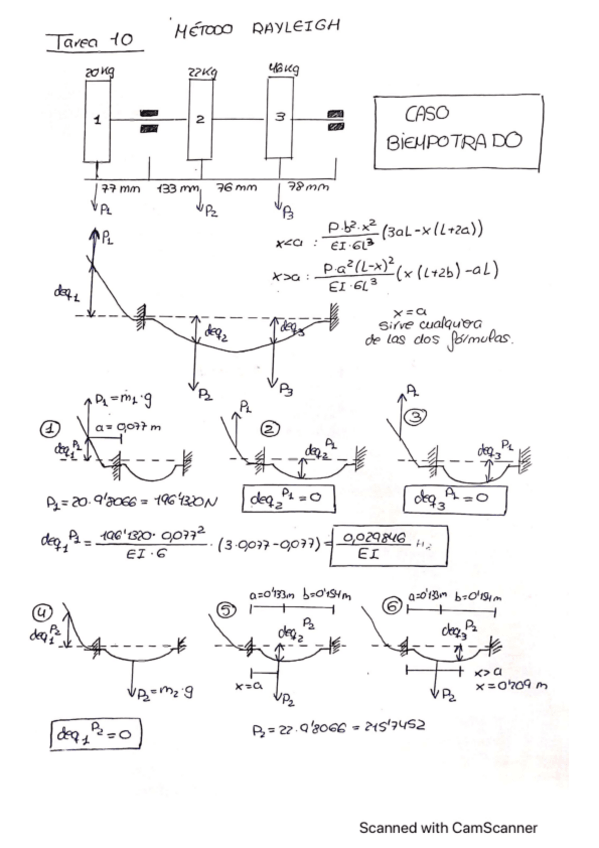 Tarea 10
MÉTODO RAYLEIGH
20Kg 22Kg 46Kg
1 2 3
CASO
BIEMPOTRADO
77 mm 133 mm 76 mm 78 mm
P₁ P₂ P₃
x<a : P·b²·x² / EI·6L³ (3aL-x(L+2a))
x>a : P·a²(L-x)² / EI·6L³ (x(L+2b)-aL)
x=a
sirve cualquiera
de las dos fórmulas.
P₁
deq₁ deq₂ deq₃
P₂ P₃
① P₁=m₁·g
a=0,077 m
deq₁ᴾ¹
② P₁
deq₂ᴾ¹
③ P₁
deq₃ᴾ¹
P₁=20·9'8066=196'1320N
deq₂ᴾ¹=0
deq₃ᴾ¹=0
deq₁ᴾ¹ = 196'1320·0,077² / EI·6 · (3·0,077-0,077) = 0,029846 / EI
④ deq₁ᴾ²
P₂=m₂·g
⑤ a=0'133m b=0'154m
deq₂ᴾ²
x=a
P₂
⑥ a=0'133m b=0'154m
deq₃ᴾ²
P₂
x>a
x=0'209 m
deq₁ᴾ²=0
P₂=22·9'8066=215'7452
Scanned with CamScanner